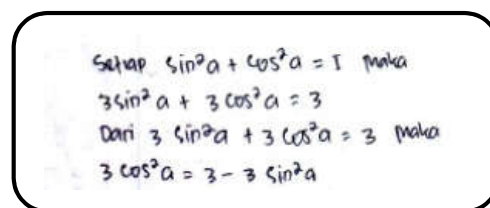 Setiap sin²a + cos²a = 1 maka
3 sin²a + 3 cos²a = 3
Dari 3 sin²a + 3 cos²a = 3 maka
3 cos²a = 3 - 3 sin²a